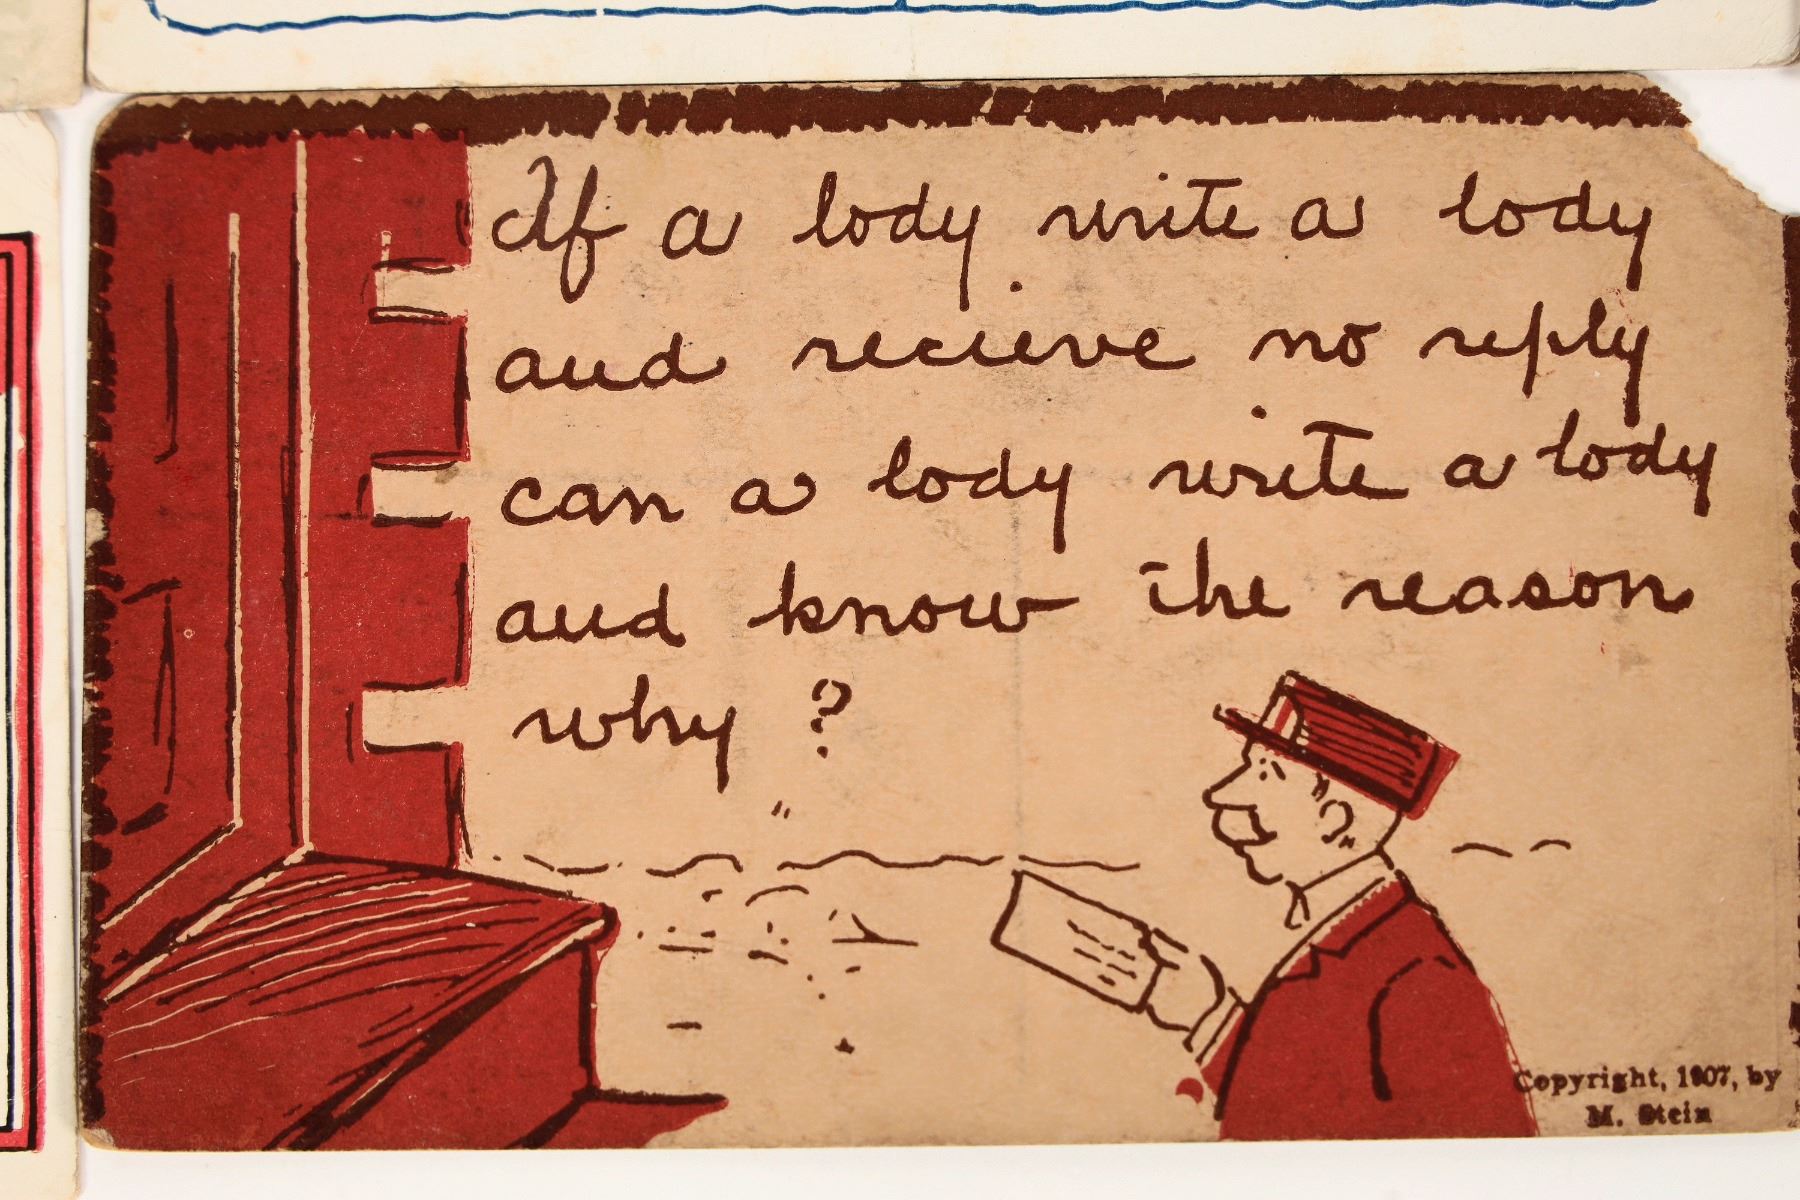 If a lody write a lody
and recieve no reply
can a lody write a lody
and know the reason
why ?
Copyright, 1907, by
M. Stein